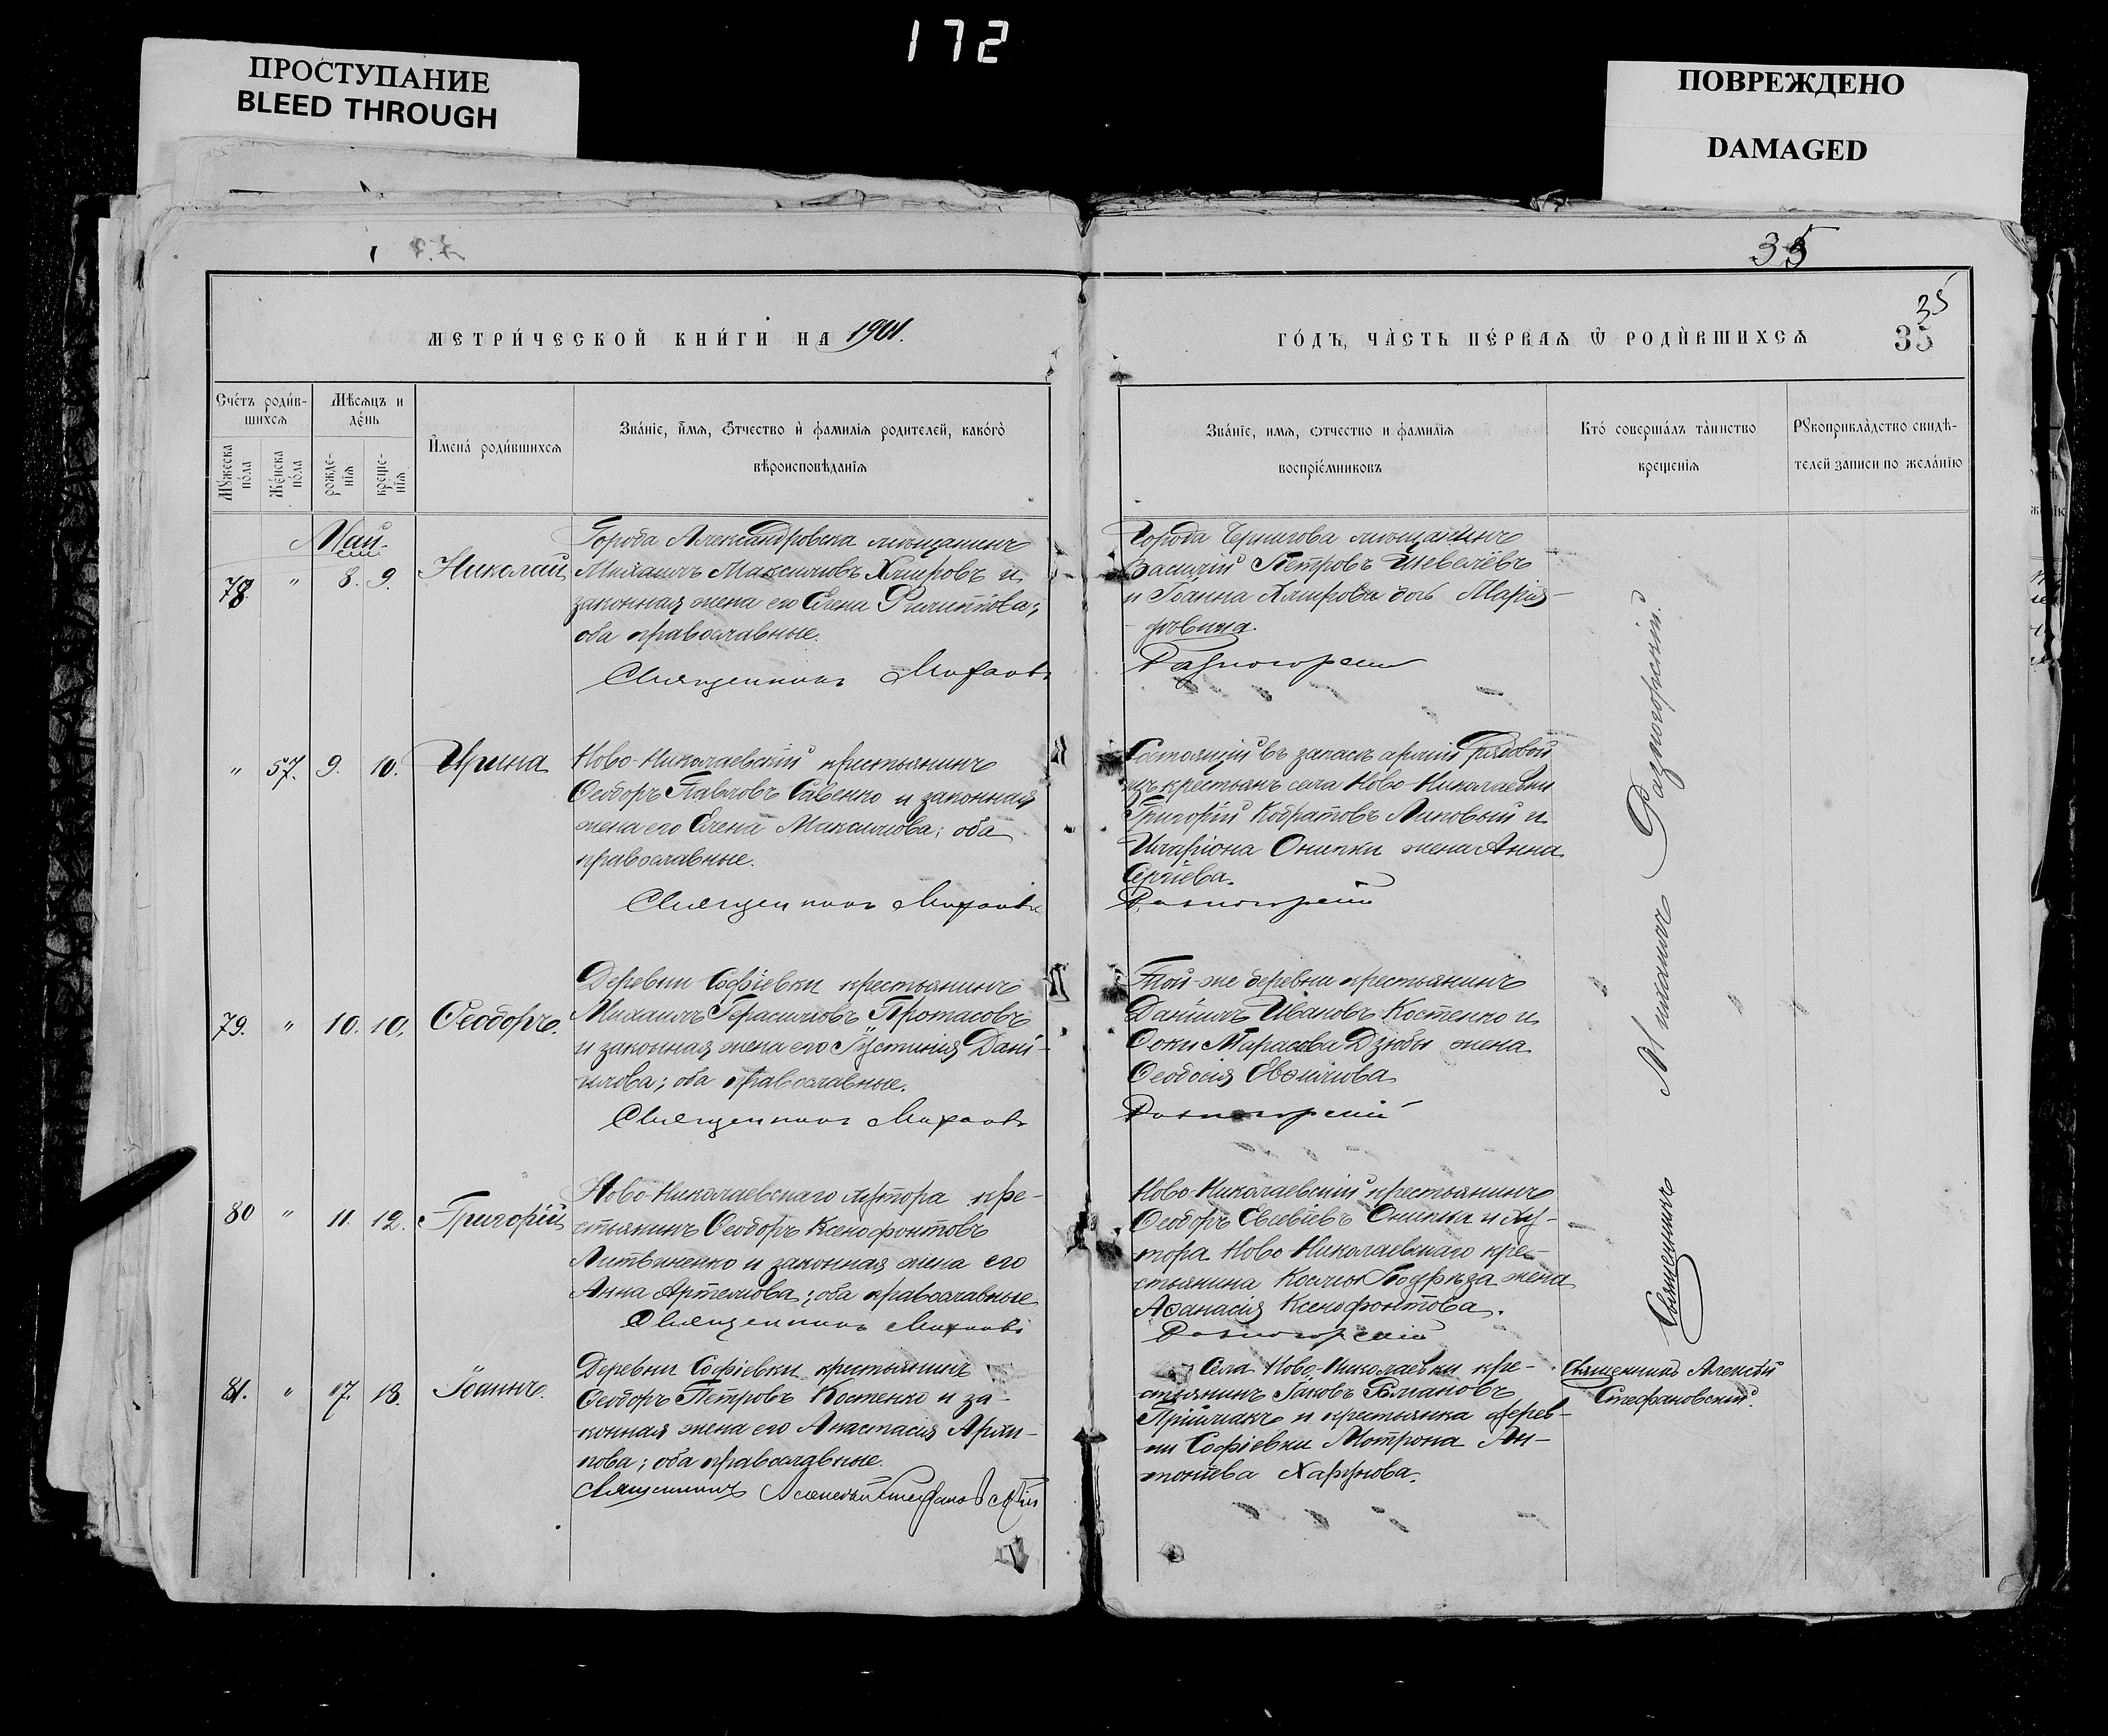 172
ПРОСТУПАНИЕ
BLEED THROUGH
ПОВРЕЖДЕНО
DAMAGED
35
35
35
МЕТРИ́ЧЕСКОЙ КНИ́ГИ НА 1901.
ГО́ДЪ, ЧА́СТЬ ПЕ́РВАЯ Ѿ РОДИ́ВШИХСЯ
Сче́тъ роди́в-
шихся
Мѣ́сяцъ и
де́нь
Муже́ска по́ла
Же́нска по́ла
рожде-
нія
креще-
нія
Имена́ роди́вшихся
Зва́ніе, и́мя, ѻ́тчество и фами́лія родителей, како́гѡ
вѣроисповѣ́данія
Зва́ніе, имя, ѻтчество и фами́лія
воспріе́мниковъ
Кто́ соверша́лъ та́инство
креще́нія
Рукоприкла́дство свидѣ́-
телей записи по жела́нію
Май
78. " 8. 9. Николай
Города Александровска мѣщанинъ
Михаилъ Максимовъ Хмыровъ и
законная жена его Елена Филиппова;
оба православные.
Священникъ Михаилъ
Города Чернигова мѣщанинъ
Василій Петровъ Шевелёвъ
и Іоанна Хмырова дочь Марія
Разногорскій
" 57. 9. 10. Ирина
Ново-Николаевскій крестьянинъ
Ѳеодоръ Павловъ Савенко и законная
жена его Елена Максимова; оба
православные.
Священникъ Михаилъ
Состоящій въ запасѣ арміи рядовой
изъ крестьянъ села Ново-Николаевки
Григорій Кодратовъ Липовый и
Иларіона Онипки жена Анна
Сергіева.
Разногорскій
79. " 10. 10. Ѳеодоръ.
Деревни Софіевки крестьянинъ
Михаилъ Герасимовъ Протасовъ
и законная жена его Іустинія Дані-
илова; оба православные.
Священникъ Михаилъ
Той-же деревни крестьянинъ
Даніилъ Ивановъ Костенко и
Ѳоки Тарасова Дзюбы жена
Ѳеодосія Евѳимова
Разногорскій
80 " 11. 12. Григорій
Ново-Николаевскаго хутора кре-
стьянинъ Ѳеодоръ Ксенофонтовъ
Литвиненко и законная жена его
Анна Артемова; оба православные
Священникъ Михаилъ
Ново-Николаевскій крестьянинъ
Ѳеодоръ Евсевіевъ Онипка и ху-
тора Ново-Николаевскаго кре-
стьянина Космы Подрѣза жена
Аѳанасія Ксенофонтова.
Разногорскій
Священникъ Михаилъ Разногорскій.
81. " 17. 18. Іоаннъ.
Деревни Софіевки крестьянинъ
Ѳеодоръ Петровъ Костенко и за-
конная жена его Анастасія
оба православные.
Священникъ Алексѣй Стефановскій
Села Ново-Николаевки кре-
стьянинъ Іаковъ Романовъ
Пріймакъ и крестьянка дерев-
ни Софіевки Мотрона Ан-
тоніева
Священникъ Алексѣй
Стефановскій.